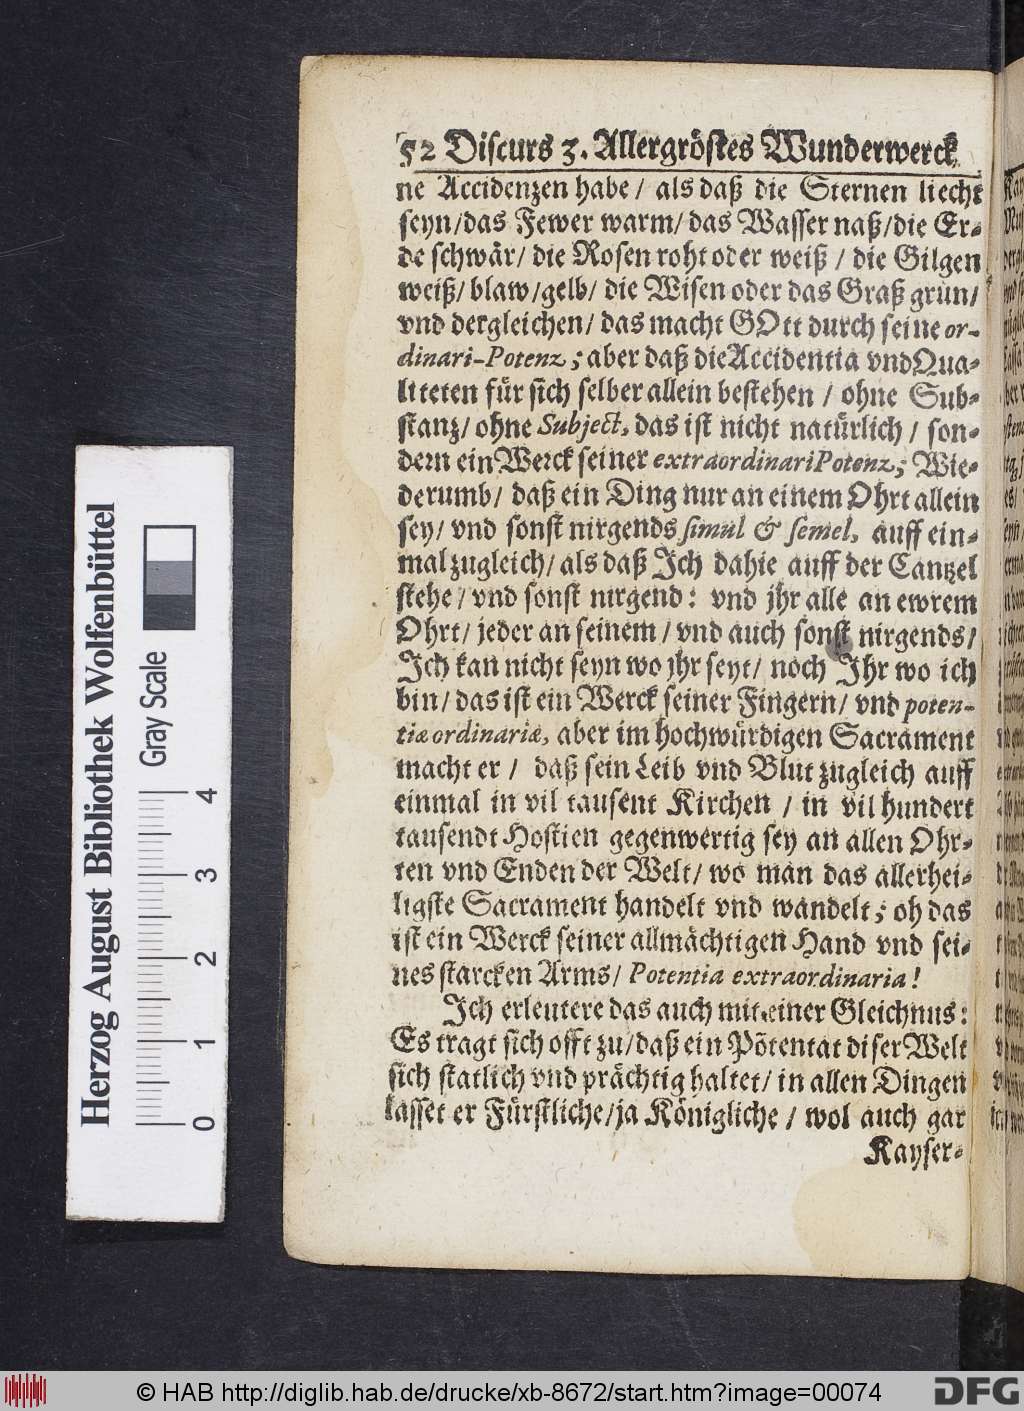 52 Discurs 3. Allergröstes Wunderwerck
ne Accidenzen habe / als daß die Sternen liecht
seyn/das Fewer warm/ das Wasser naß/die Er-
de schwär/ die Rosen roht oder weiß / die Gilgen
weiß/ blaw/gelb/ die Wisen oder das Graß grün/
vnd dergleichen/ das macht GOtt durch seine or-
dinari-Potenz; aber daß die Accidentia vnd Qua-
liteten für sich selber allein bestehen / ohne Sub-
stanz/ ohne Subject, das ist nicht natürlich / son-
dern ein Werck seiner extraordinari Potenz; Wie-
derumb/ daß ein Ding nur an einem Ohrt allein
sey/ vnd sonst nirgends simul & semel, auff ein-
mal zugleich/ als daß Ich dahie auff der Cantzel
stehe/ vnd sonst nirgend: vnd jhr alle an ewrem
Ohrt/ jeder an seinem / vnd auch sonst nirgends/
Ich kan nicht seyn wo jhr seyt/ noch Ihr wo ich
bin/ das ist ein Werck seiner Fingern/ vnd poten-
tiæ ordinariæ, aber im hochwürdigen Sacrament
macht er / daß sein Leib vnd Blut zugleich auff
einmal in vil tausent Kirchen / in vil hundert
tausendt Hostien gegenwertig sey an allen Ohr-
ten vnd Enden der Welt/ wo man das allerhei-
ligste Sacrament handelt vnd wandelt; oh das
ist ein Werck seiner allmächtigen Hand vnd sei-
nes starcken Arms/ Potentia extraordinaria!
Ich erleutere das auch mit einer Gleichnus:
Es tragt sich offt zu/ daß ein Potentat diser Welt
sich statlich vnd prächtig haltet/ in allen Dingen
lasset er Fürstliche/ja Königliche / wol auch gar
Kayser-
Herzog August Bibliothek Wolfenbüttel
Gray Scale
0 1 2 3 4
© HAB http://diglib.hab.de/drucke/xb-8672/start.htm?image=00074
DFG